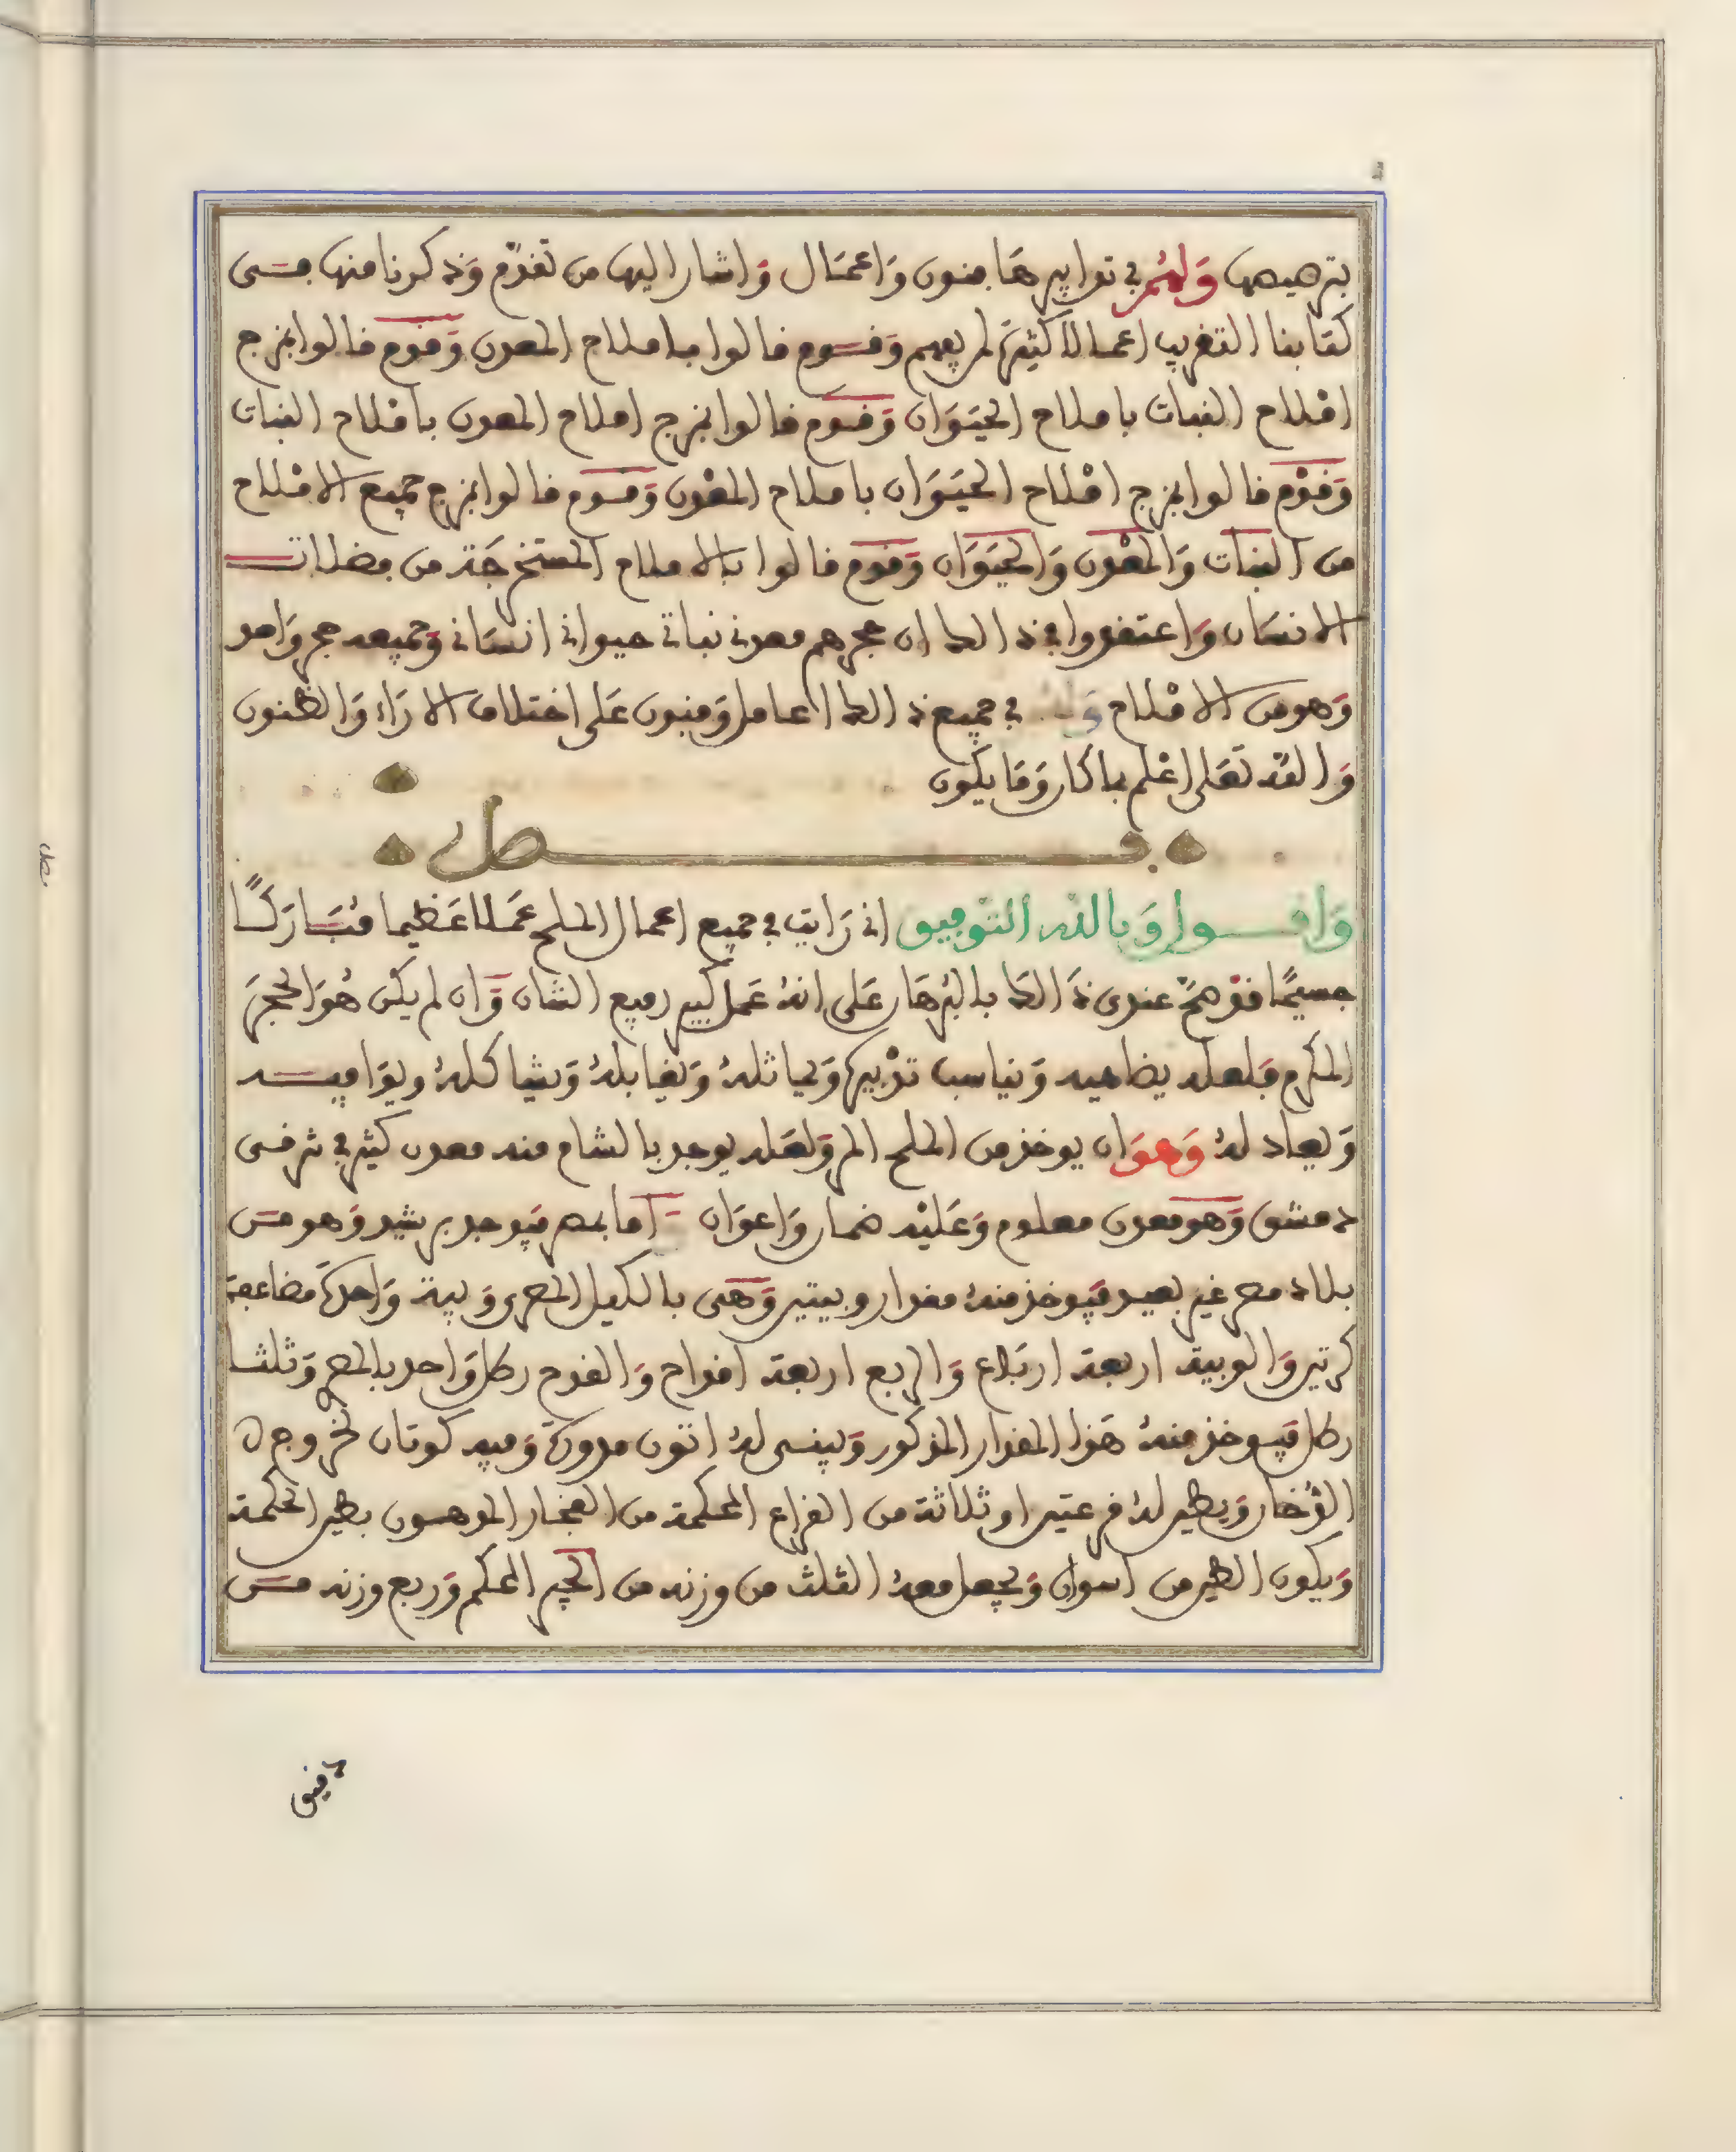 بترهيبها ولهم في تدابيرها فنون واعمال واشار اليها من تقدم وذكرنا منها في
كتابنا التقريب اعمالا كثيرة لم يفهم وقوم قالوا باملاح المعدن وقوم قالوا بمزج
املاح النبات باملاح الحيوان وقوم قالوا بمزج املاح المعدن باملاح النبات
وقوم قالوا بمزج املاح الحيوان باملاح المعدن وقوم قالوا بمزج جميع الاملاح
من النبات والمعدن والحيوان وقوم قالوا بالاملاح المستخرجة من فضلات
الانسان واعتقدوا في ذالك ان حجرهم معدني نباتي حيواني انساني وجميعه حجر واحد
وهو من الاملاح ولهم في جميع ذالك اعامل وفنون على اختلاف الاراء والظنون
والله تعلى اعلم بما كان وما يكون
فصل
واقول وبالله التوفيق اني رايت في جميع اعمال الملح عملا عظيما مباركا
جسيما فقد صح عندي ذالك بالبرهان على انه عمل كبير رفيع الشان وان لم يكن هو الحجر
المكرم فلعله يضاهيه ويناسب تدبيره ويماثله ويقابله ويشاكله ويوافيه
ويعادله وهو ان يوخذ من الملح المر ولعله يوجد بالشام منه معدن كثير في شرقي
دمشق وهو معدن معلوم وعليه ضمان واعوان اما بمصر فيوجد برشيد وهو من
بلاد مصر غير بعيد فيوخذ منه مقدار ويبتين وهي بالكيل المصري ويبة واحدة مضاعفة
كرتين والويبة اربعة ارباع والربع اربعة اقداح والقدح رطل واحد بالمصري وثلث
رطل فيوخذ منه هذا المقدار المذكور ويبنى له اتون مدورة وفيه كوتان لخروج
الدخان ويطين له قرعتين او ثلاثة من القراع المحكمة من الفخار المدهون بطين الحكمة
ويكون الطين من اسوان ويجعل معه الثلث من وزنه من الجير المحكم وربع وزنه من